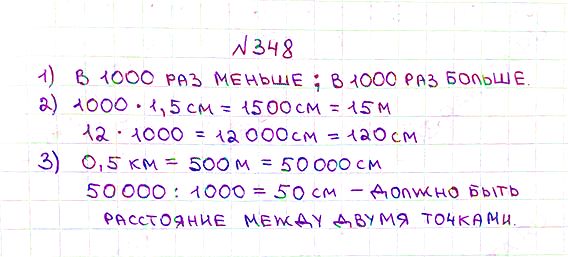 №348
1) В 1000 РАЗ МЕНЬШЕ; В 1000 РАЗ БОЛЬШЕ.
2) 1000 · 1,5 СМ = 1500 СМ = 15 М
12 · 1000 = 12 000 СМ = 120 СМ
3) 0,5 КМ = 500 М = 50 000 СМ
50 000 : 1000 = 50 СМ – ДОЛЖНО БЫТЬ
РАССТОЯНИЕ МЕЖДУ ДВУМЯ ТОЧКАМИ.